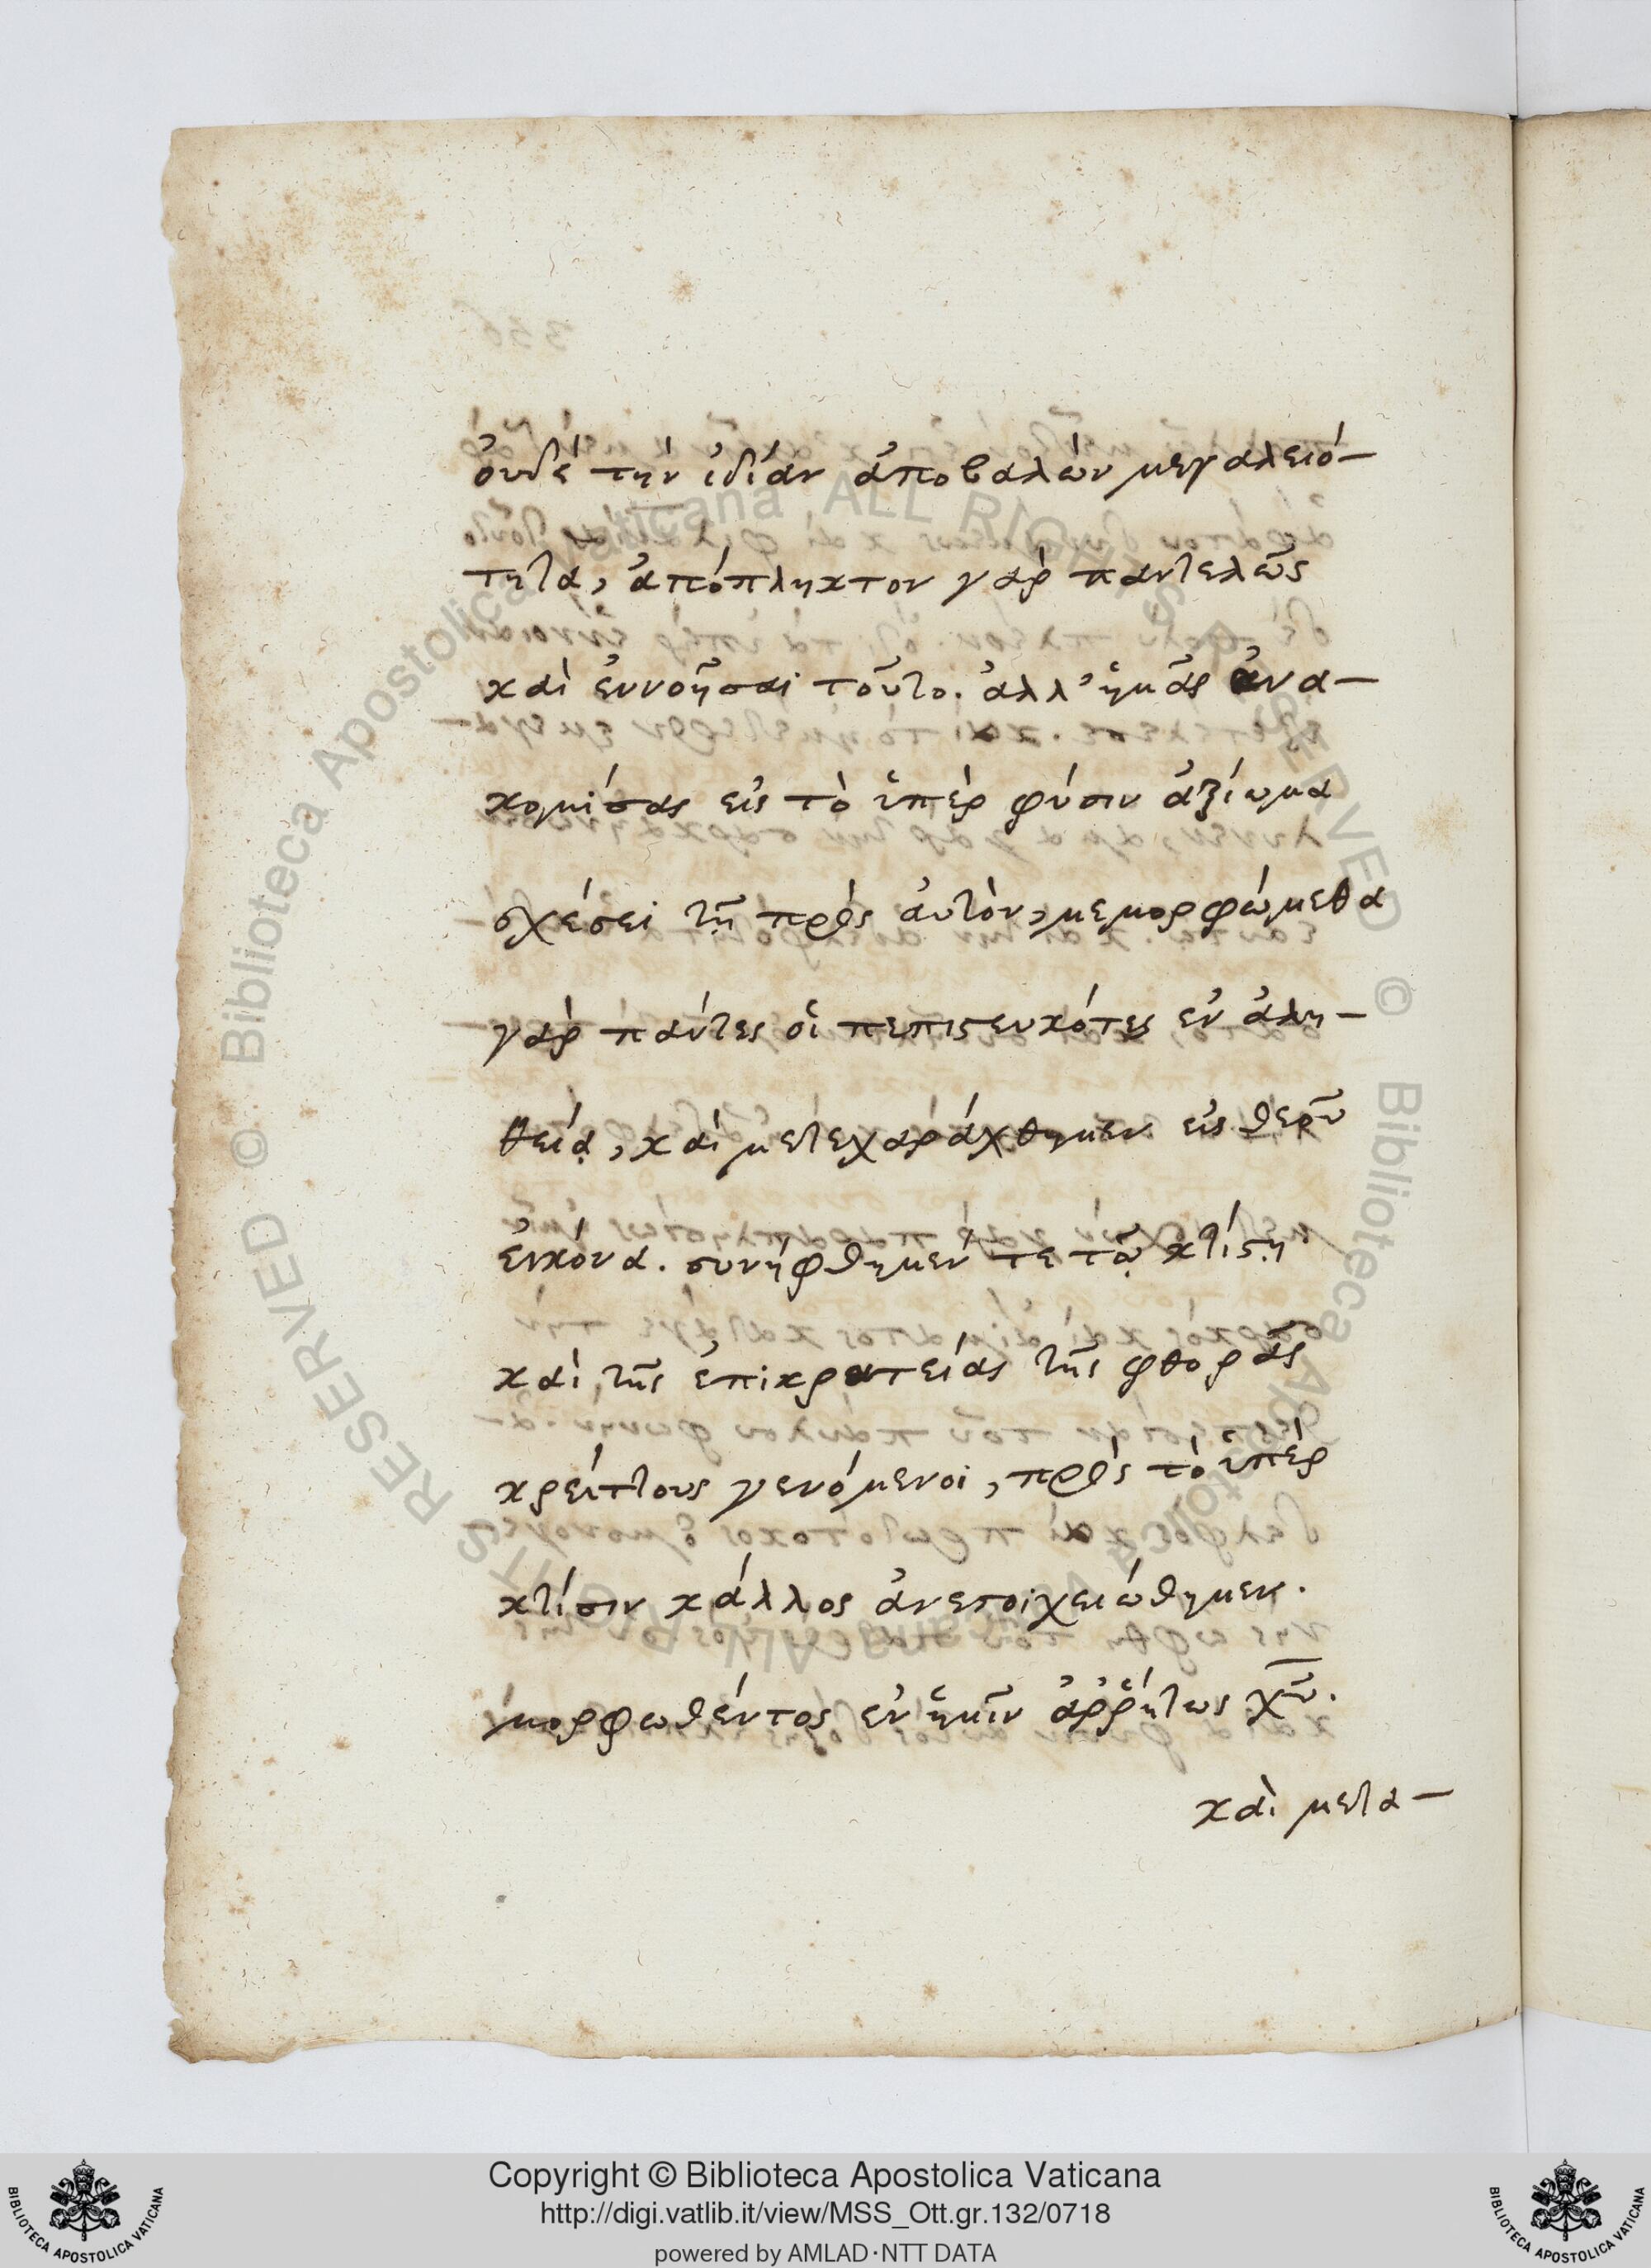 ὀυδέ τὴν ἰδίαν ἀποβαλὼν μεγαλειό-
τητα, ἀπόπληκτον γὰρ παντελῶς
καὶ ἐννοῆσαι τοῦτο. ἀλλ' ἡμᾶς ἀνα-
κομίσας εἰς τὸ ὑπὲρ φύσιν ἀξίωμα
σχέσει τῇ πρὸς ἀυτὸν, μεμορφώμεθα
γὰρ πάντες οἱ πεπιστευκότες ἐν ἀλη-
θείᾳ, καὶ μετεχαράχθημεν εἰς θερῦ
ἐικόνα. συνήφθημέν τε τῷ κτίστῃ
καὶ τῆς ἐπικρατείας τῆς φθορᾶς
κρείττους γενόμενοι, πρὸς τὸ ὑπὲρ
κτίσιν κάλλος ἀνεστοιχειώθημεν.
μορφωθέντος ἐν ἡμῖν ἀῤῥήτως χῦ.
καὶ μετα-
Copyright © Biblioteca Apostolica Vaticana
http://digi.vatlib.it/view/MSS_Ott.gr.132/0718
powered by AMLAD·NTT DATA
BIBLIOTECA APOSTOLICA VATICANA
BIBLIOTECA APOSTOLICA VATICANA
© Biblioteca Apostolica Vaticana ALL RIGHTS RESERVED
© Biblioteca Apostolica Vaticana ALL RIGHTS RESERVED